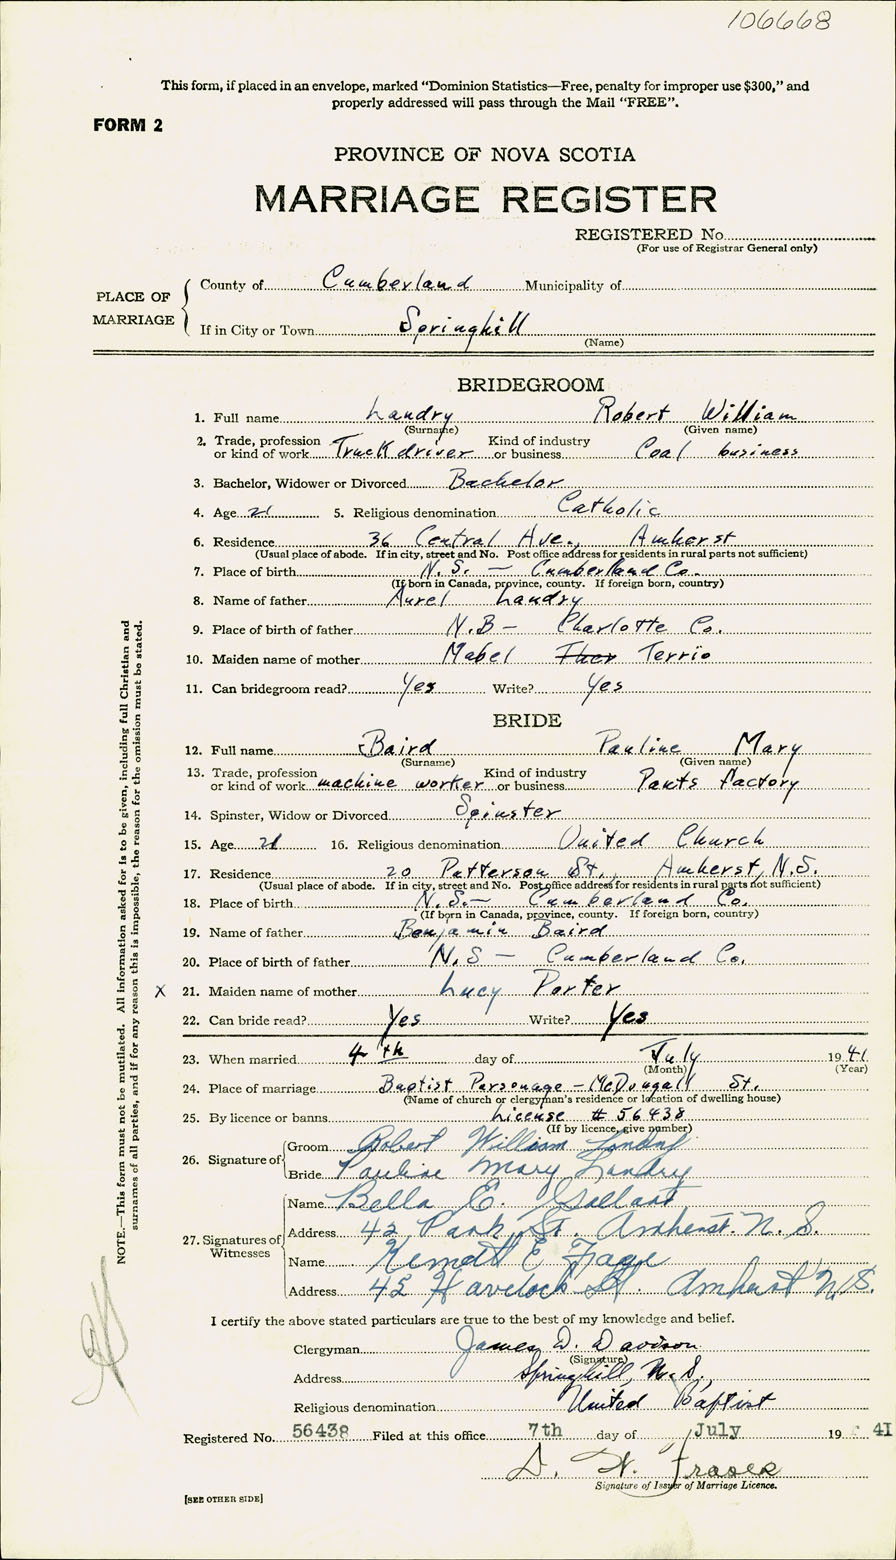 106668
This form, if placed in an envelope, marked "Dominion Statistics—Free, penalty for improper use $300," and
properly addressed will pass through the Mail "FREE".
FORM 2
PROVINCE OF NOVA SCOTIA
MARRIAGE REGISTER
REGISTERED No.
(For use of Registrar General only)
PLACE OF MARRIAGE
County of Cumberland Municipality of
If in City or Town Springhill
(Name)
BRIDEGROOM
1. Full name Landry Robert William
(Surname) (Given name)
2. Trade, profession or kind of work Truck driver Kind of industry or business Coal business
3. Bachelor, Widower or Divorced Bachelor
4. Age 21 5. Religious denomination Catholic
6. Residence 36 Central Ave., Amherst
(Usual place of abode. If in city, street and No. Post office address for residents in rural parts not sufficient)
7. Place of birth N.S. — Cumberland Co.
(If born in Canada, province, county. If foreign born, country)
8. Name of father Aurel Landry
9. Place of birth of father N.B — Charlotte Co.
10. Maiden name of mother Mabel Terrio
11. Can bridegroom read? Yes Write? Yes
BRIDE
12. Full name Baird Pauline Mary
(Surname) (Given name)
13. Trade, profession or kind of work machine worker Kind of industry or business Pants factory
14. Spinster, Widow or Divorced Spinster
15. Age 21 16. Religious denomination United Church
17. Residence 20 Patterson St., Amherst, N.S.
(Usual place of abode. If in city, street and No. Post office address for residents in rural parts not sufficient)
18. Place of birth N.S. — Cumberland Co.
(If born in Canada, province, county. If foreign born, country)
19. Name of father Benjamin Baird
20. Place of birth of father N.S — Cumberland Co.
X 21. Maiden name of mother Lucy Porter
22. Can bride read? Yes Write? Yes
23. When married 4th day of July 1941
(Month) (Year)
24. Place of marriage Baptist Parsonage — McDougall St.
(Name of church or clergyman's residence or location of dwelling house)
25. By licence or banns License # 56438
(If by licence, give number)
26. Signature of
Groom Robert William Landry
Bride Pauline Mary Landry
27. Signatures of Witnesses
Name Bella E. Gallant
Address 42 Park St. Amherst. N.S.
Name E
Address 45 Havelock St. Amherst N.S.
I certify the above stated particulars are true to the best of my knowledge and belief.
Clergyman James D. Davison
(Signature)
Address Springhill, N.S.,
Religious denomination United Baptist
Registered No. 56438 Filed at this office 7th day of July 19 41
D. W. Fraser
Signature of Issuer of Marriage Licence.
[SEE OTHER SIDE]
NOTE.—This form must not be mutilated. All information asked for is to be given, including full Christian and
surnames of all parties, and if for any reason this is impossible, the reason for the omission must be stated.